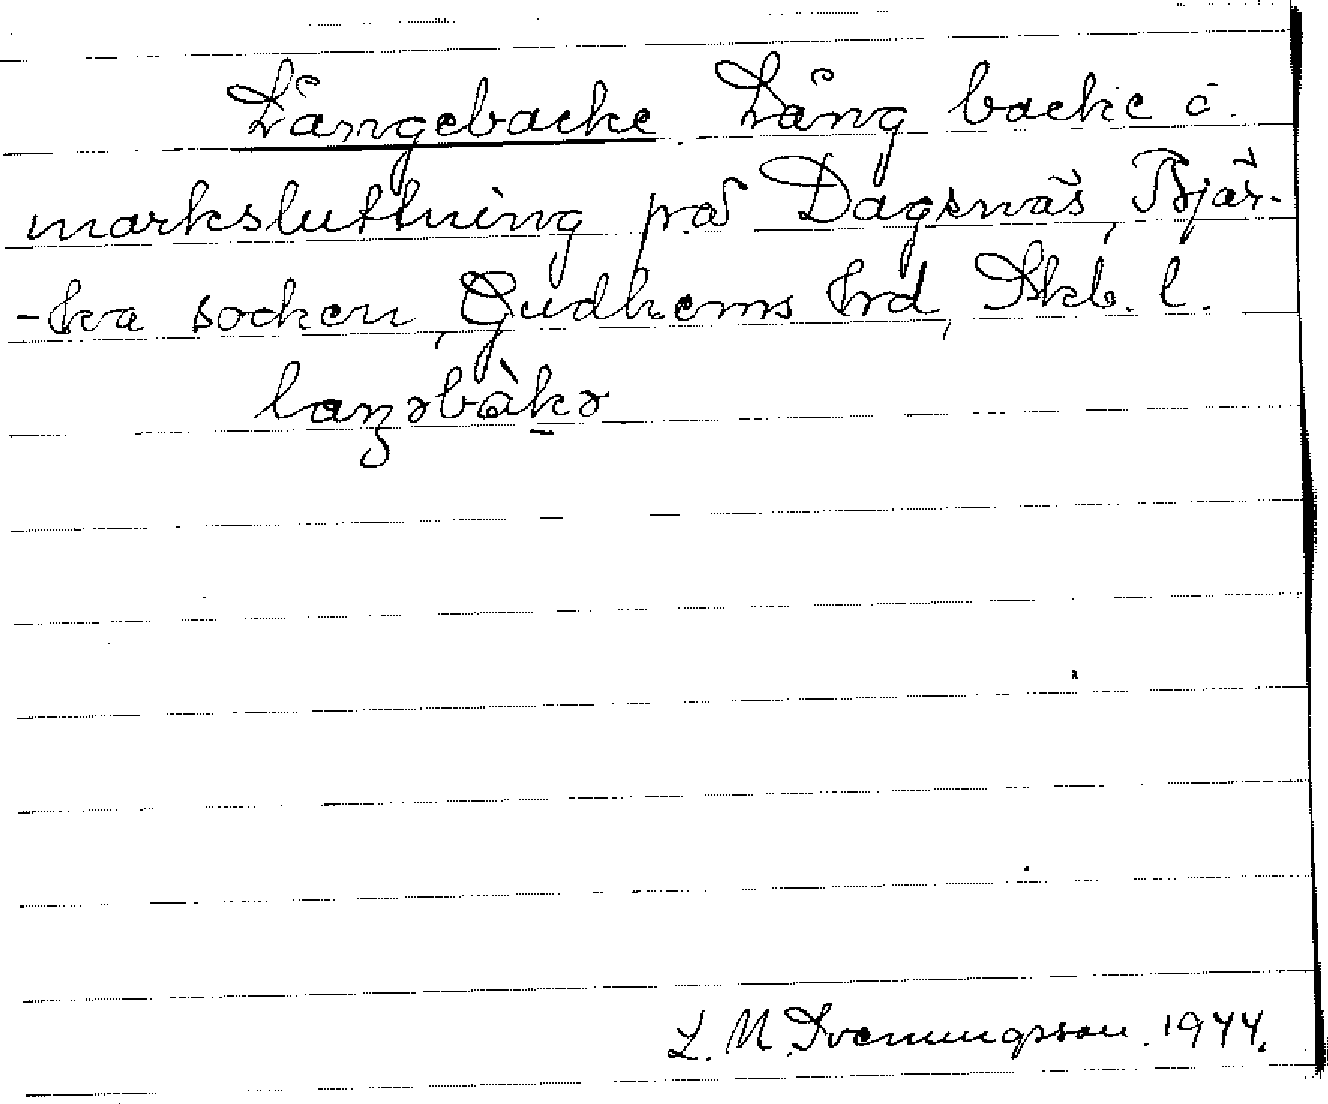 Långebacke Lång backe o.
marksluttning på Dagsnäs, Bjär-
-ka socken, Gudhems hrd, Skb. l.
laŋəbàkə
L. M. Svenungsson. 1944.